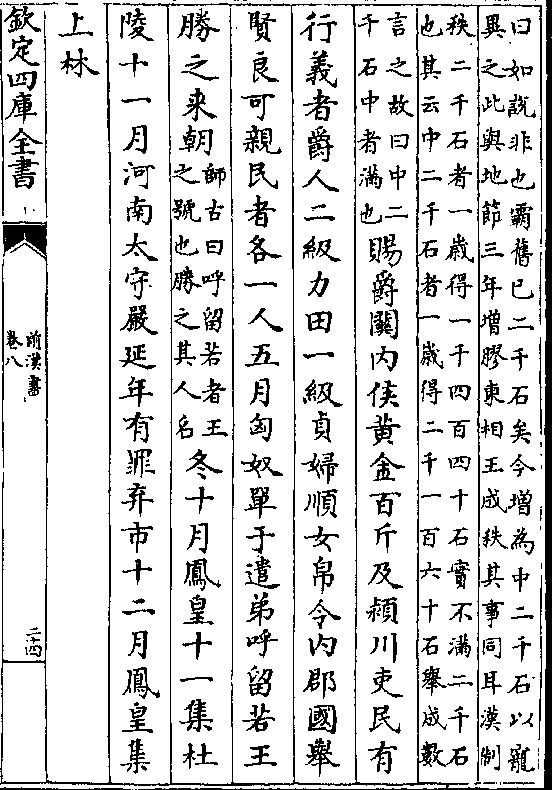 曰如說非也霸舊已二千石矣今增為中二千石以寵
異之此與地節三年增膠東相王成秩其事同耳漢制
秩二千石者一歲得一千四百四十石實不滿二千石
也其云中二千石者一歲得二千一百六十石舉成數
言之故曰中二
千石中者滿也
賜爵關內侯黃金百斤及潁川吏民有
行義者爵人二級力田一級貞婦順女帛令內郡國舉
賢良可親民者各一人五月匈奴單于遣弟呼留若王
勝之来朝
師古曰呼留若者王
之號也勝之其人名
冬十月鳳皇十一集杜
陵十一月河南太守嚴延年有罪弃市十二月鳳皇集
上林
欽定四庫全書
前漢書
卷八
二四